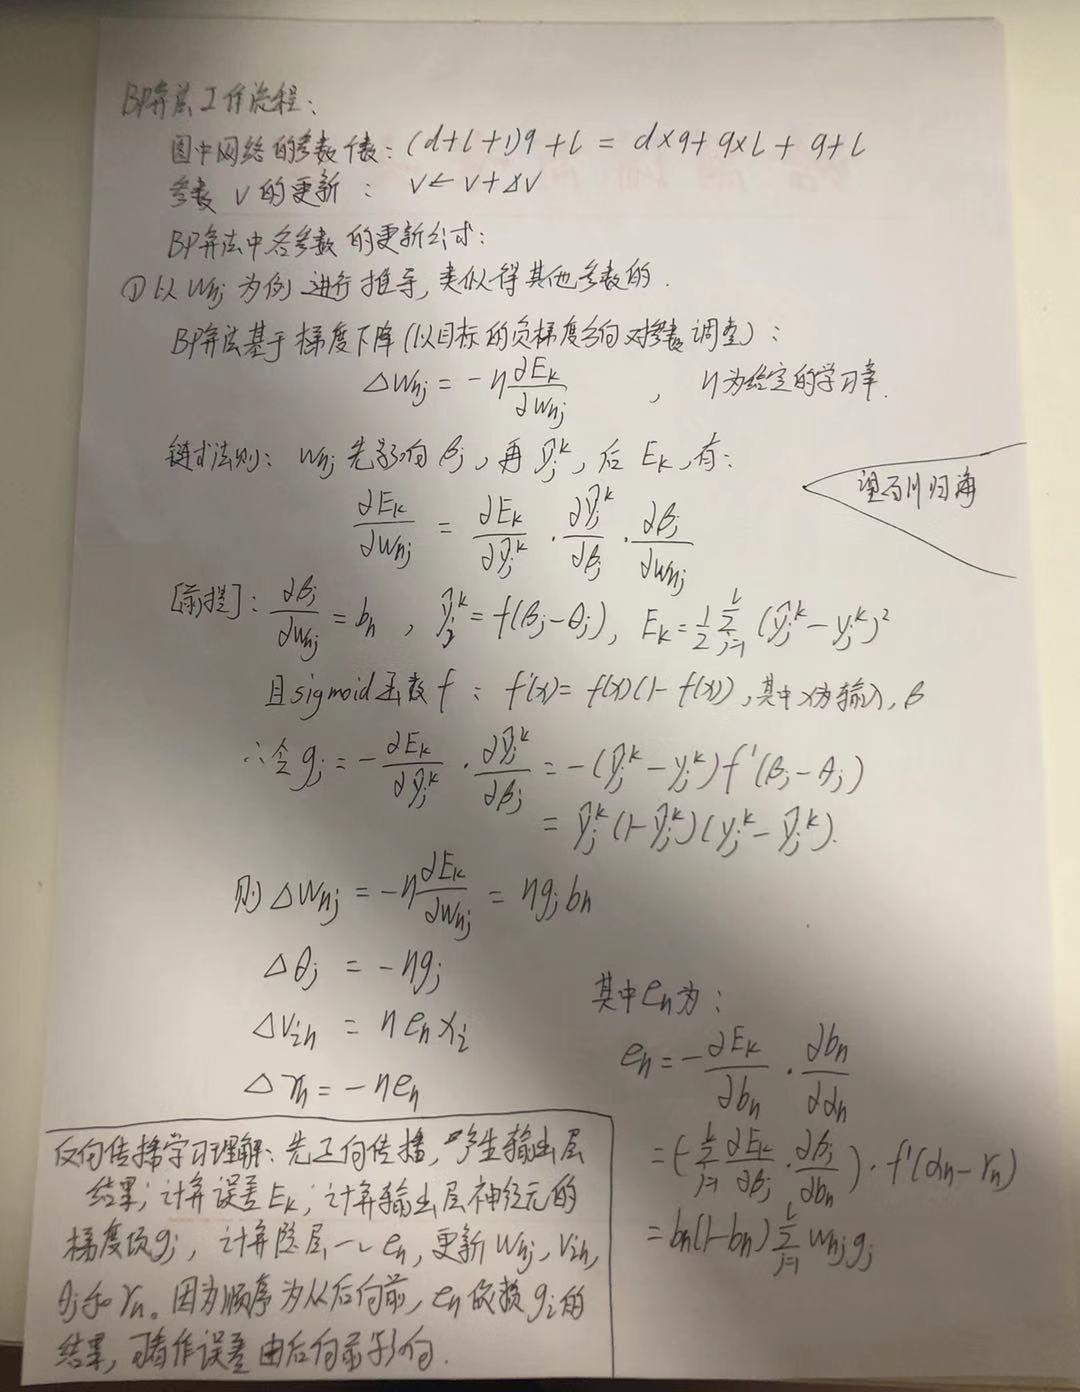 BP算法工作流程：
图中网络的参数个数：(d+l+1)q+l = d×q+q×l+q+l
参数 v 的更新： v←v+Δv
BP算法中各参数的更新公式：
① 以 w_hj 为例进行推导，类似得其他参数的.
BP算法基于梯度下降（以目标的负梯度方向对参数调整）：
Δw_hj = -η ∂E_k/∂w_hj ， η为给定的学习率.
链式法则：w_hj 先影响 β_j，再 ŷ_j^k，后 E_k，有：
∂E_k/∂w_hj = ∂E_k/∂ŷ_j^k · ∂ŷ_j^k/∂β_j · ∂β_j/∂w_hj
百川归海
[前提]：∂β_j/∂w_hj = b_h ， ŷ_j^k = f(β_j-θ_j)， E_k = 1/2 Σ_{j=1}^{l} (ŷ_j^k - y_j^k)²
且sigmoid函数 f ： f'(x) = f(x)(1-f(x))，其中x为输入，β
∴令 g_j = -∂E_k/∂ŷ_j^k · ∂ŷ_j^k/∂β_j = -(ŷ_j^k - y_j^k) f'(β_j-θ_j)
= ŷ_j^k(1-ŷ_j^k)(y_j^k - ŷ_j^k).
则 Δw_hj = -η ∂E_k/∂w_hj = ηg_j b_h
Δθ_j = -ηg_j
Δv_ih = ηe_h x_i
Δγ_h = -ηe_h
其中e_h为：
e_h = -∂E_k/∂b_h · ∂b_h/∂α_h
= (-Σ_{j=1}^{l} ∂E_k/∂β_j · ∂β_j/∂b_h) · f'(α_h-γ_h)
= b_h(1-b_h) Σ_{j=1}^{l} w_hj g_j
反向传播学习理解：先正向传播，产生输出层
结果；计算误差E_k；计算输出层神经元的
梯度项g_j，计算隐层～e_h，更新w_hj，v_ih，
θ_j和γ_h。因为顺序为从后向前，e_h依赖g_j的
结果，可看作误差由后向前影响.